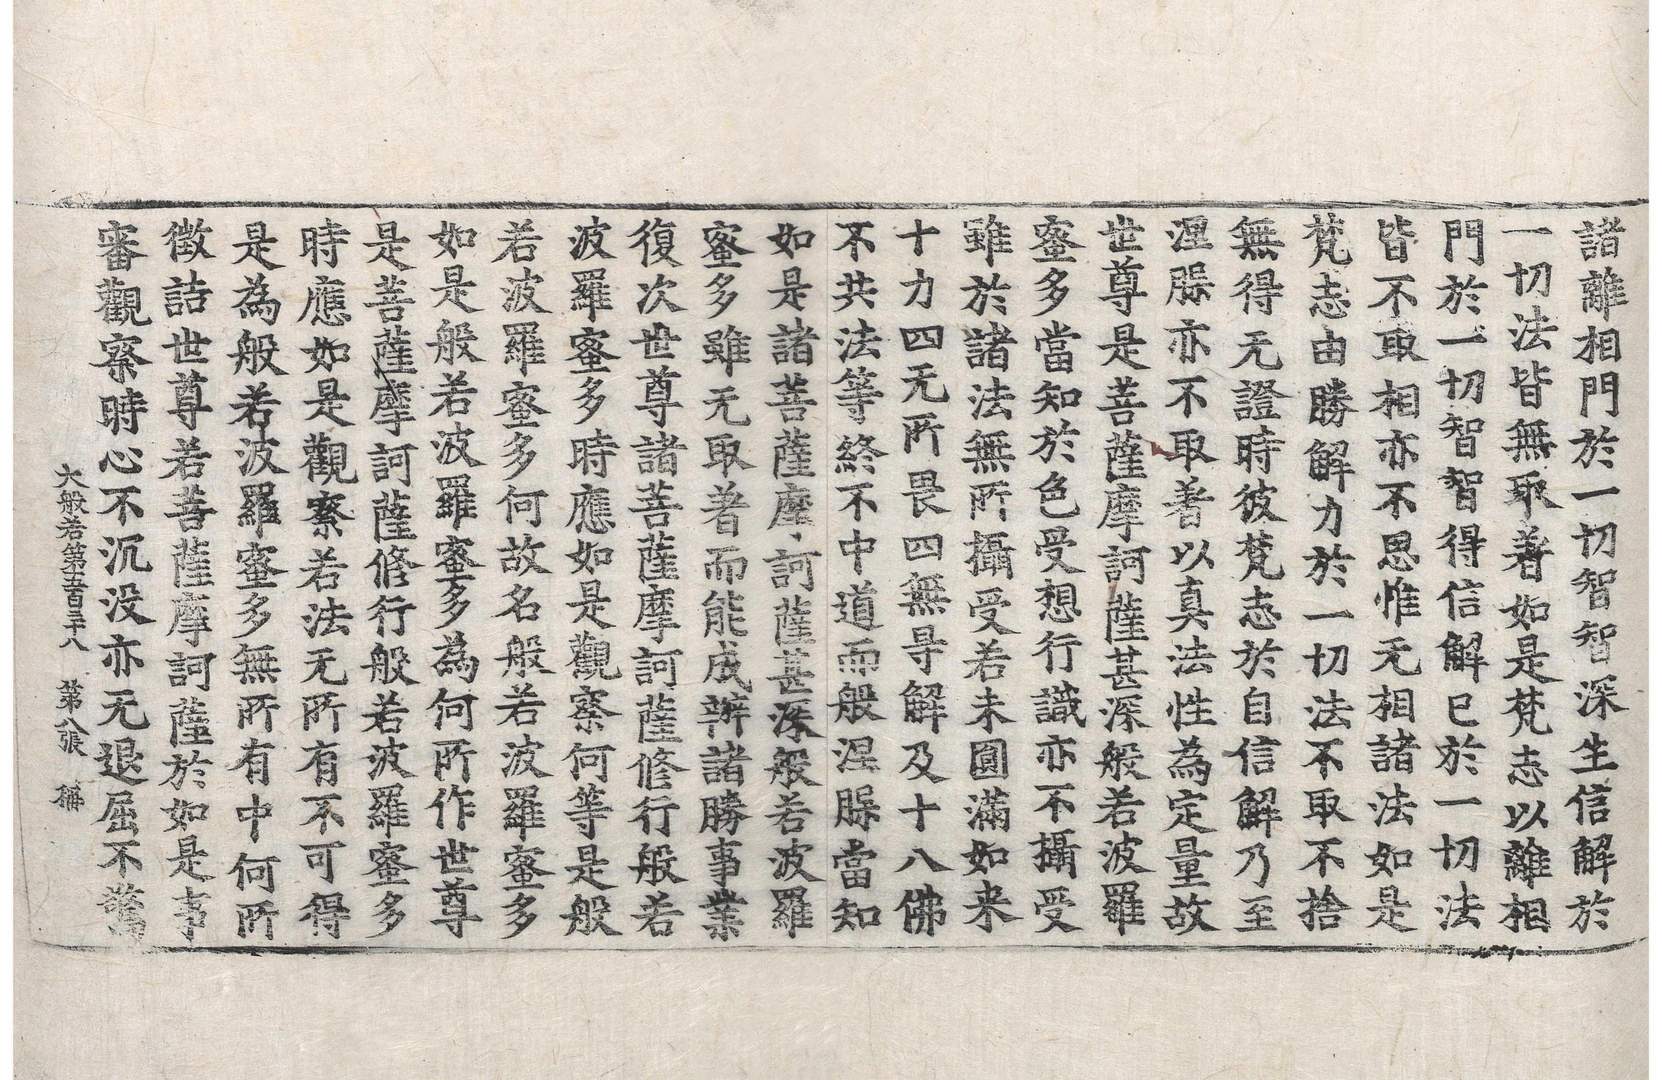 諸離相門於一切智智深生信解於
一切法皆無取著如是梵志以離相
門於一切智智得信解已於一切法
皆不取相亦不思惟无相諸法如是
梵志由勝解力於一切法不取不捨
無得无證時彼梵志於自信解乃至
涅槃亦不取著以真法性為定量故
世尊是菩薩摩訶薩甚深般若波羅
蜜多當知於色受想行識亦不攝受
雖於諸法無所攝受若未圓滿如来
十力四无所畏四無㝵解及十八佛
不共法等終不中道而般涅槃當知
如是諸菩薩摩訶薩甚深般若波羅
蜜多雖无取著而能成辦諸勝事業
復次世尊諸菩薩摩訶薩修行般若
波羅蜜多時應如是觀察何等是般
若波羅蜜多何故名般若波羅蜜多
如是般若波羅蜜多為何所作世尊
是菩薩摩訶薩修行般若波羅蜜多
時應如是觀察若法无所有不可得
是為般若波羅蜜多無所有中何所
徵詰世尊若菩薩摩訶薩於如是事
審觀察時心不沉没亦无退屈不驚
大般若第五百三十八 第八張 稱